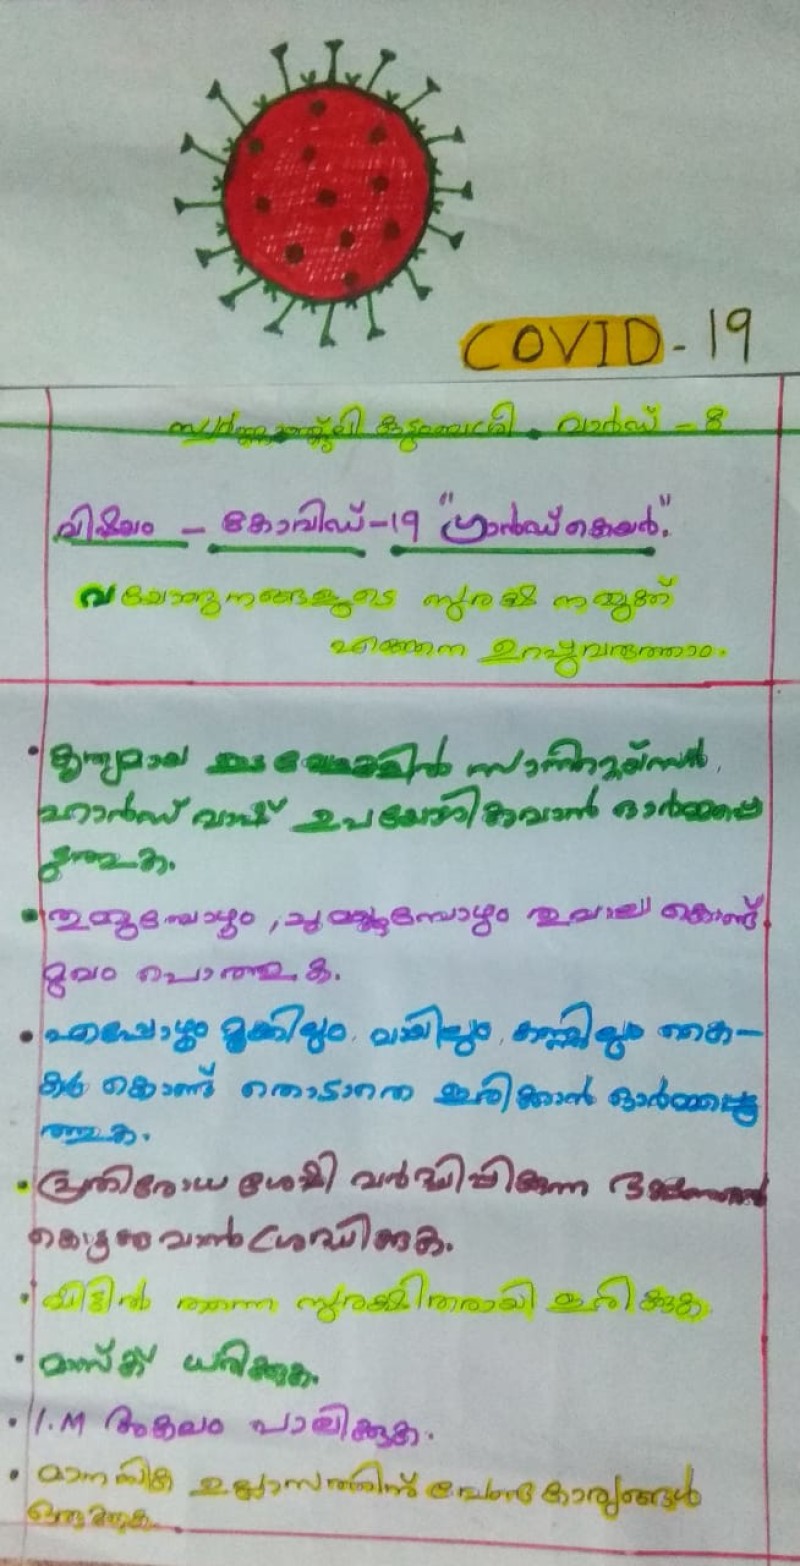 COVID-19
കുടുംബശ്രീ. വാർഡ് - 8
വിഷയം - കോവിഡ്-19 "ഗ്രാൻഡ് കെയർ."
വയോജനങ്ങളുടെ സുരക്ഷ നമുക്ക്
എങ്ങനെ ഉറപ്പുവരുത്താം.
• കൃത്യമായ സാനിറ്റൈസർ,
ഹാൻഡ് വാഷ് ഉപയോഗിക്കുവാൻ ഓർമ്മപ്പെ
ടുത്തുക.
• തുമ്മുമ്പോഴും, ചുമയ്ക്കുമ്പോഴും തുവാല കൊണ്ട്
മുഖം പൊത്തുക.
• എപ്പോഴും മൂക്കിലും, വായിലും, കണ്ണിലും കൈ-
കൾ കൊണ്ട് തൊടാതെ ഇരിക്കാൻ ഓർമ്മപ്പെടു
ത്തുക.
• പ്രതിരോധ ശേഷി വർദ്ധിപ്പിക്കുന്ന
കൊടുക്കുവാൻ ശ്രദ്ധിക്കുക.
• വീട്ടിൽ തന്നെ സുരക്ഷിതരായി ഇരിക്കുക.
• മാസ്ക് ധരിക്കുക.
• 1.M അകലം പാലിക്കുക.
• മാനസിക ഉല്ലാസത്തിന് വേണ്ട കാര്യങ്ങൾ